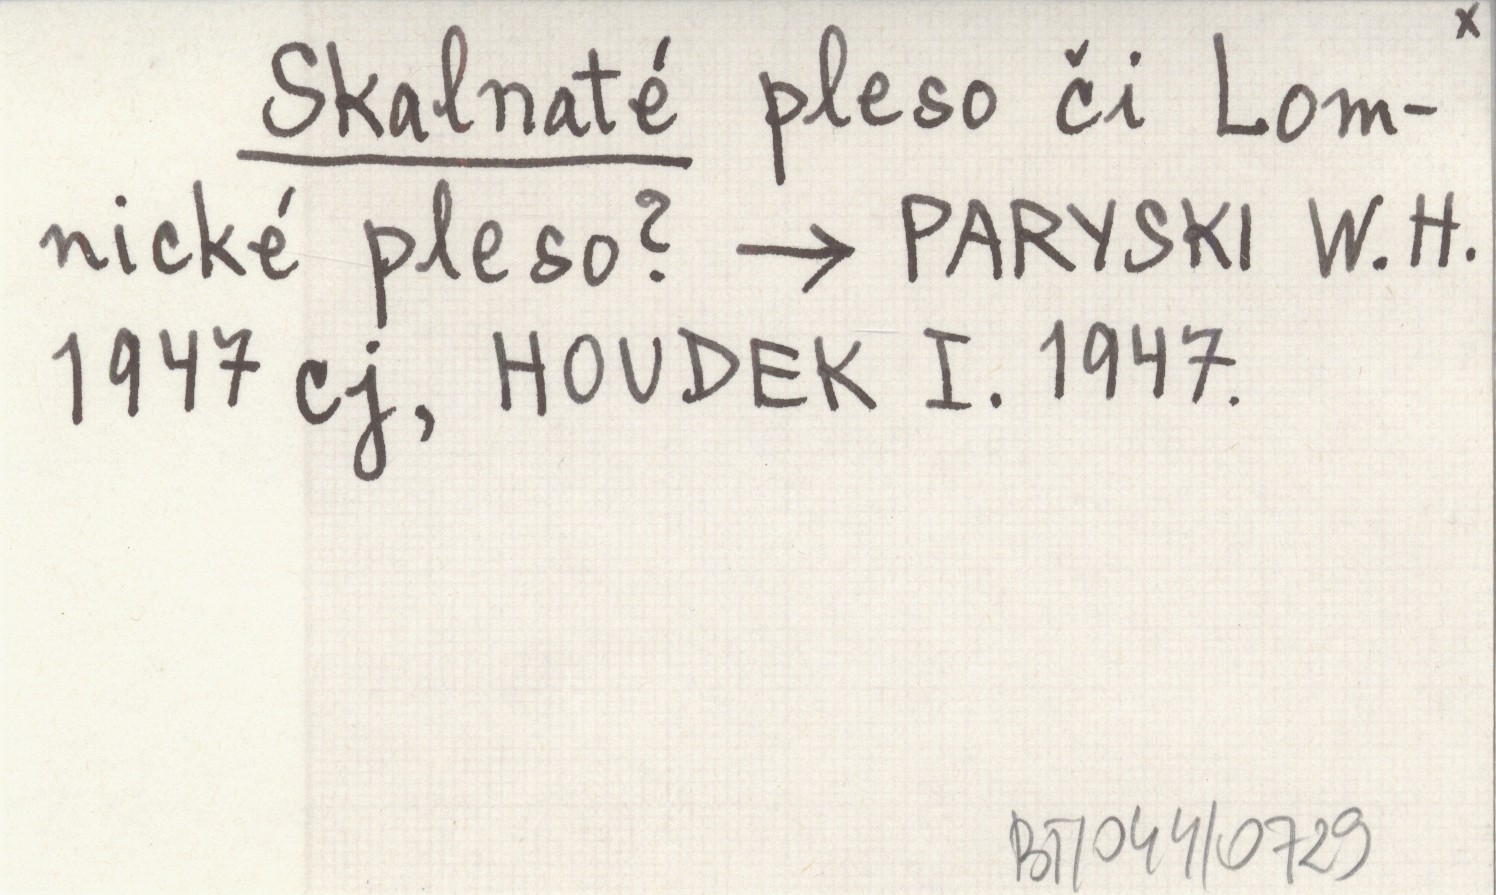 x
Skalnaté pleso či Lom-
nické pleso? → PARYSKI W.H.
1947 cj, HOUDEK I. 1947.
BT/044/0729